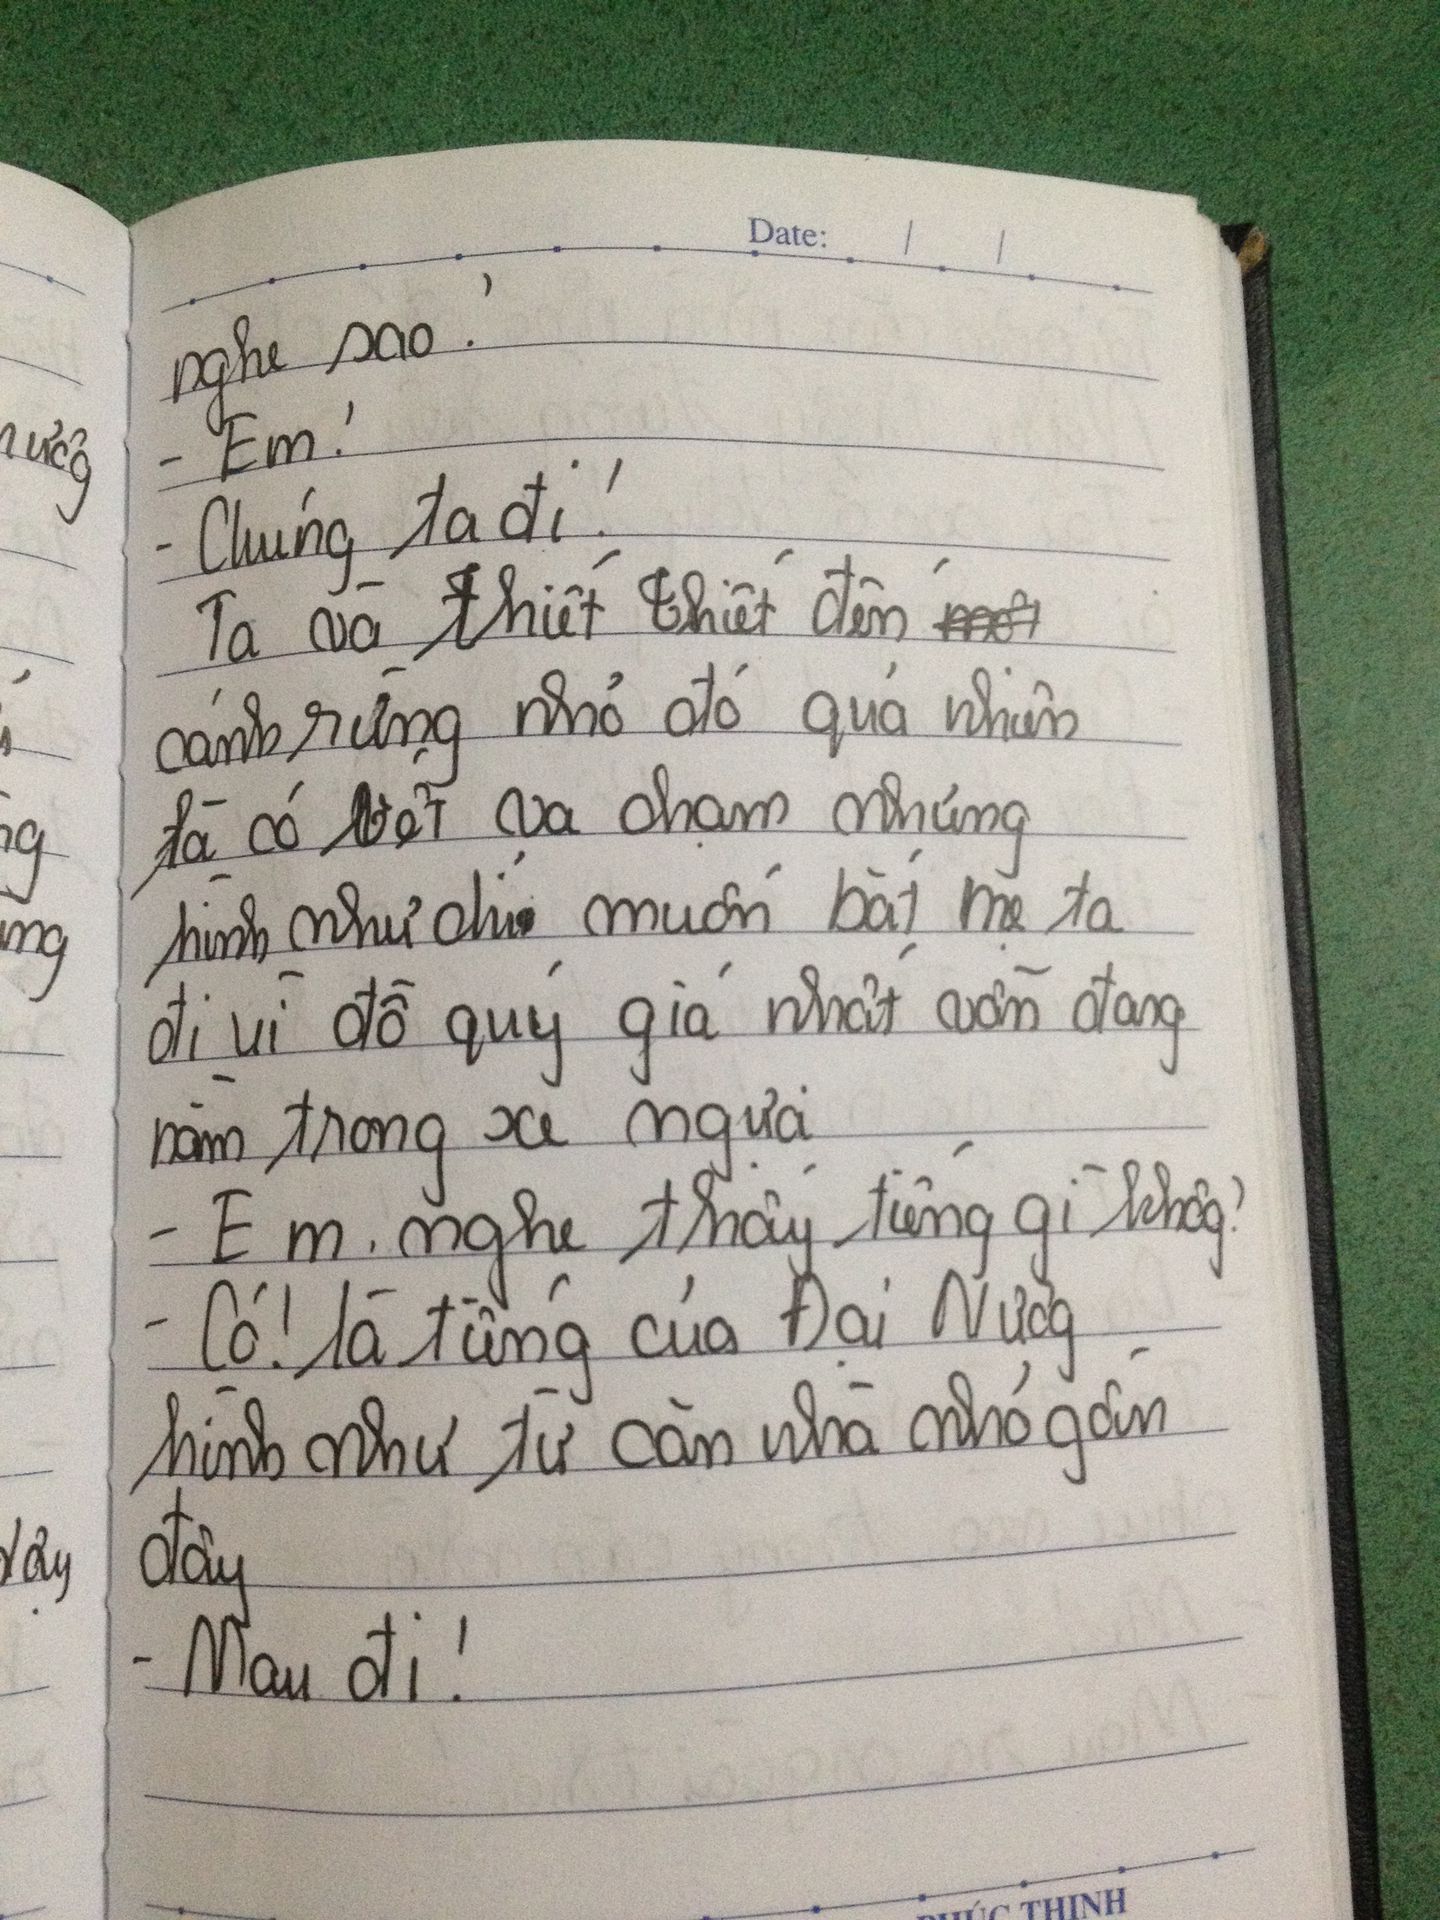 Date: / /
nghe sao!
- Em!
- Chúng ta đi!
Ta và thiết thiết đến
cánh rừng nhỏ đó quả nhiên
là có vết va chạm nhưng
hình như chỉ muốn bắt mẹ ta
đi vì đồ quý giá nhất vẫn đang
nằm trong xe ngựa
- Em. nghe thấy tiếng gì không?
- Có! là tiếng của Đại Nương
hình như từ căn nhà nhỏ gần
đây
- Mau đi!
PHÚC THỊNH